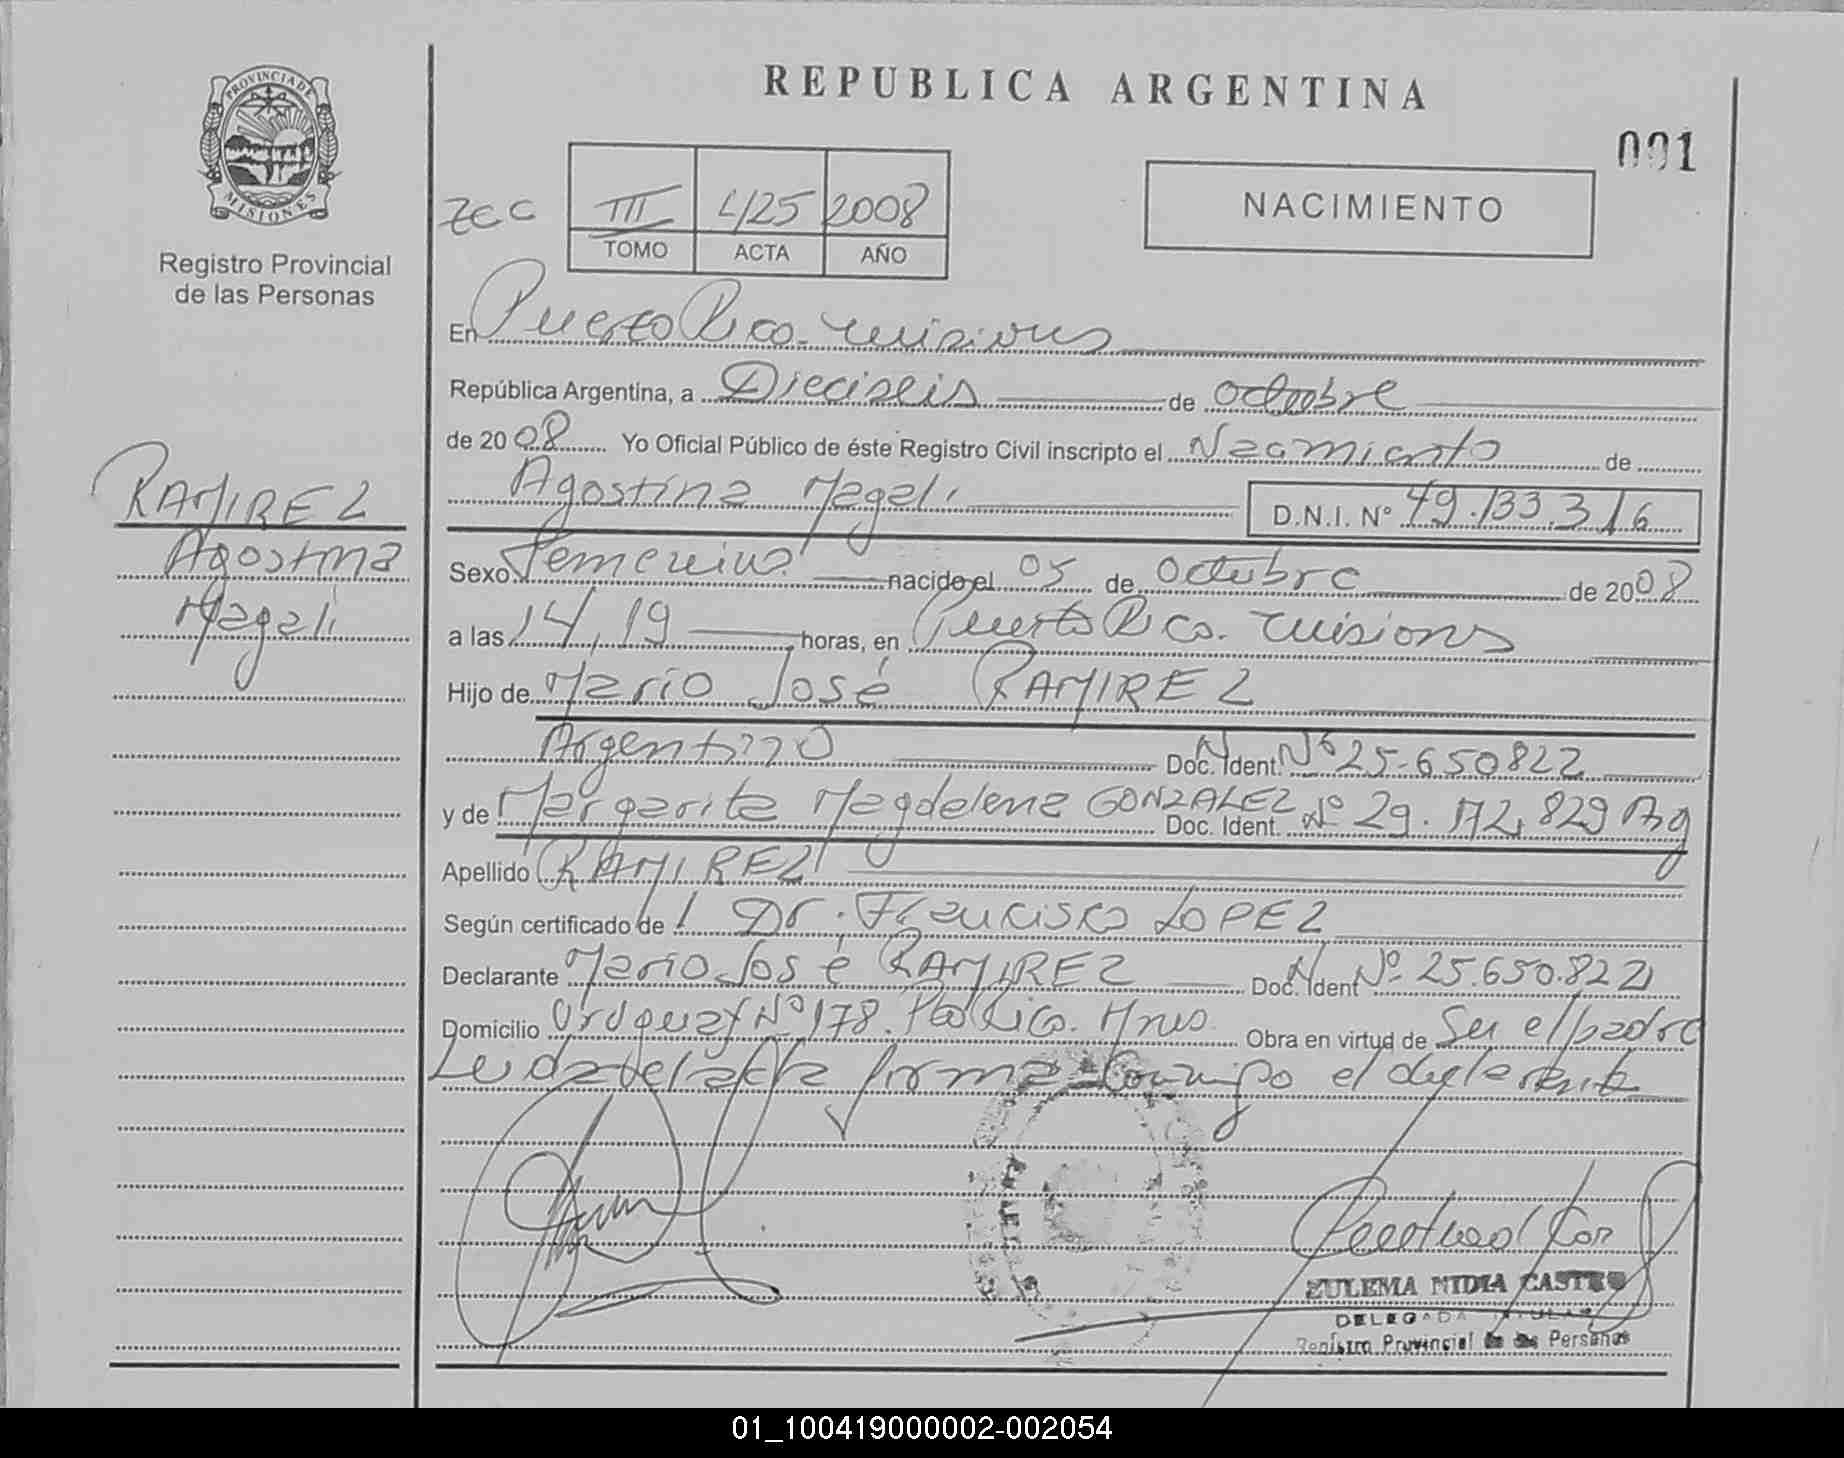 REPUBLICA ARGENTINA
001
PROVINCIA DE
MISIONES
Registro Provincial
de las Personas
III 425 2008
TOMO ACTA AÑO
NACIMIENTO
En Puerto Rico. Misiones
República Argentina, a Dieciseis de octubre
de 2008 Yo Oficial Público de éste Registro Civil inscripto el Nacimiento de
Agostina Magali D.N.I. Nº 49.133.316
RAMIREZ
Agostina
Magali
Sexo Femenino nacido el 05 de Octubre de 2008
a las 14,19 horas, en Puerto Rico. Misiones
Hijo de Mario José RAMIREZ
Argentino Doc. Ident. Nº 25.650822
y de Margarita Magdalena GONZALEZ Doc. Ident. Nº 29.172,829 Arg
Apellido RAMIREZ
Según certificado de Dr. Francisco LOPEZ
Declarante Mario José RAMIREZ Doc. Ident Nº 25.650.822
Domicilio Uruguay Nº 178. Pto Rico. Mnes. Obra en virtud de Ser el padre
Leida el acta firma conmigo el declarante
ZULEMA NIDIA CASTRO
DELEGADA TITULAR
Registro Provincial de las Personas
01_100419000002-002054